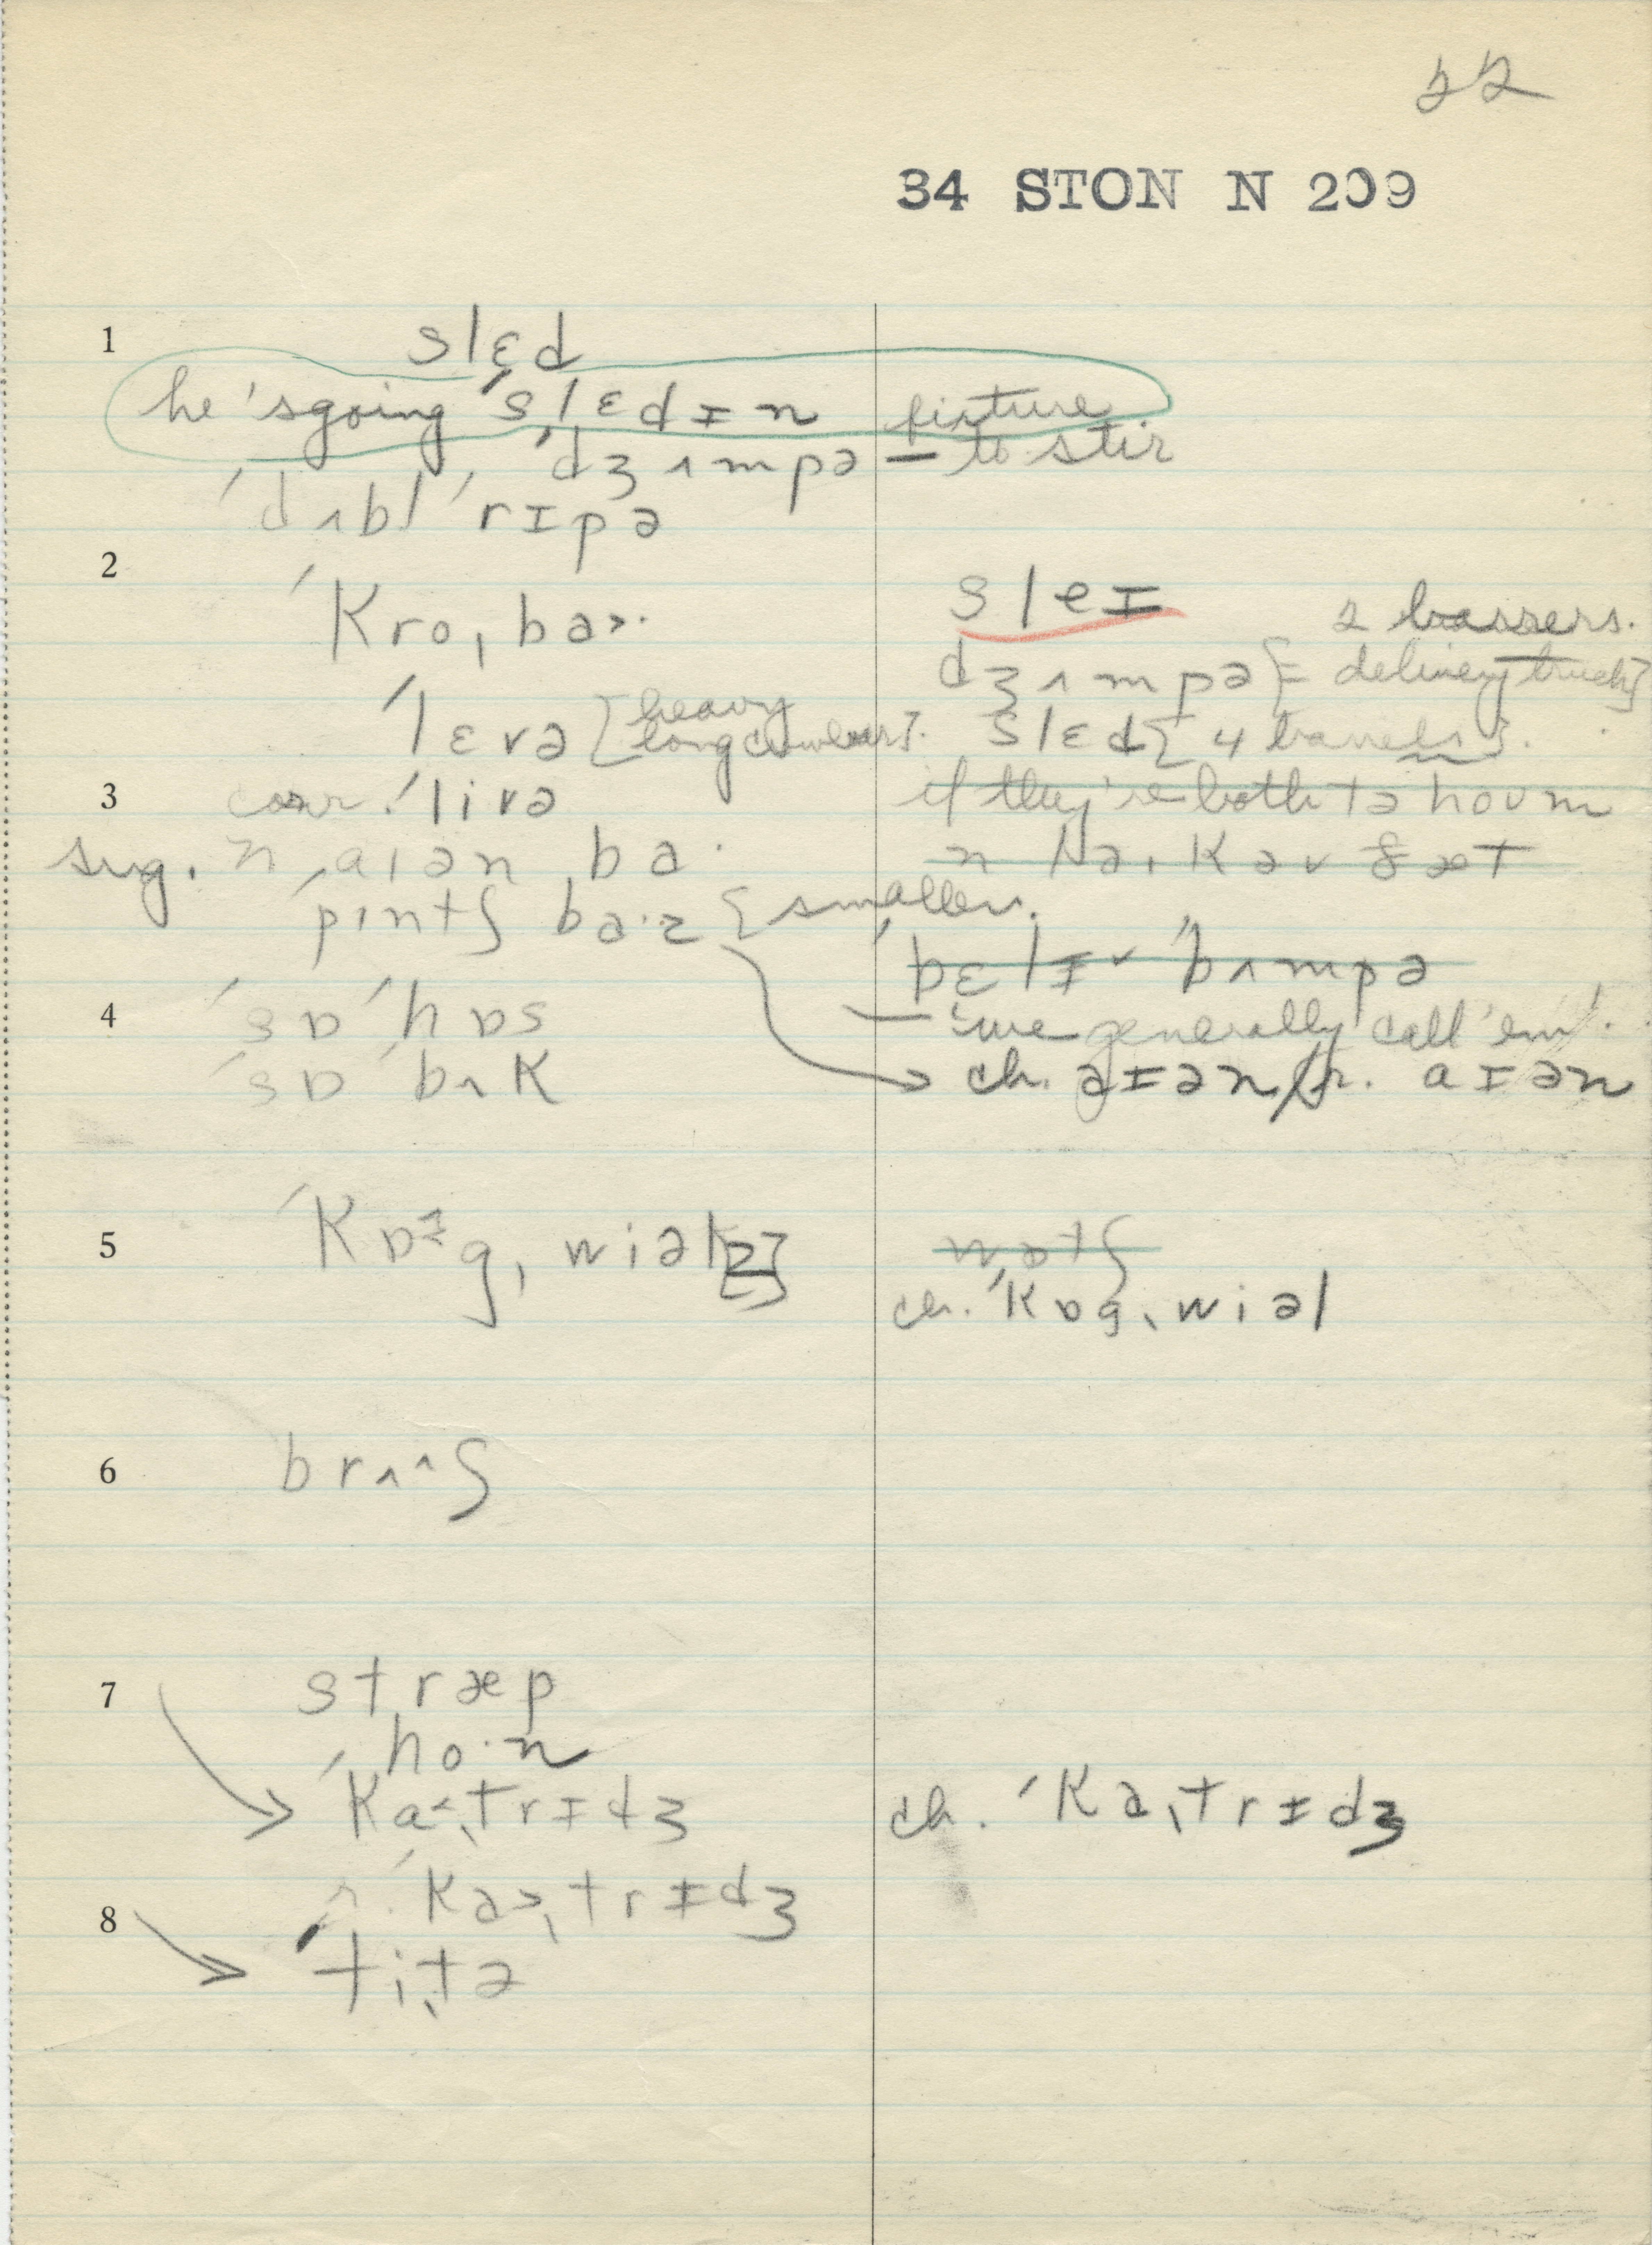 22
34 STON N 209
1 slɛd
he 'sgoing 'slɛdɪn picture
'dʒʌmpə — to stir
'dʌbl 'rɪpə
2
'kro,ba>·
'lɛvə [heavy
long crowbars].
3 corr. 'livə
sug. n ,aɪən ,ba·
'pɪntʃ ba·z [smaller.
4 'sɒ 'hɒs
'sɒ 'bʌk
5 'kɒɪg, wiəl[z]
6 brʌ^ʃ
7 stræp
ho·n
'ka<ˌtrɪdʒ
r. 'ka>ˌtrɪdʒ
8 'tiˌtə
sleɪ
dʒʌmpə [= delivery truck]
slɛd [4 barrels].
if they're both tə hoʊm
n Na, Kəv ðæt
'bɛlɪ 'bʌmpə
— 'we generally call 'em'.
ch. aɪən/r. aɪən
wɒtʃ
ch. 'kɒgˌwiəl
ch. 'kaˌtrɪdʒ